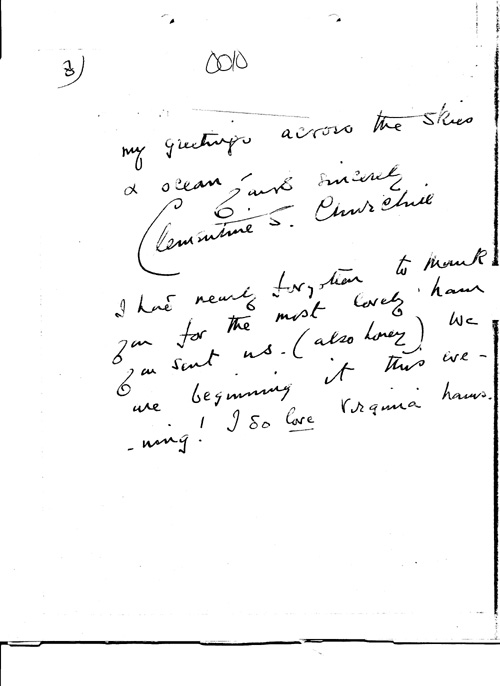 3)
0010
my greetings across the skies
& ocean yours sincerely
Clementine S. Churchill
I had nearly forgotten to thank
you for the most lovely ham
you sent us. (also honey) We
are beginning it this eve-
-ning! I so love Virginia hams.